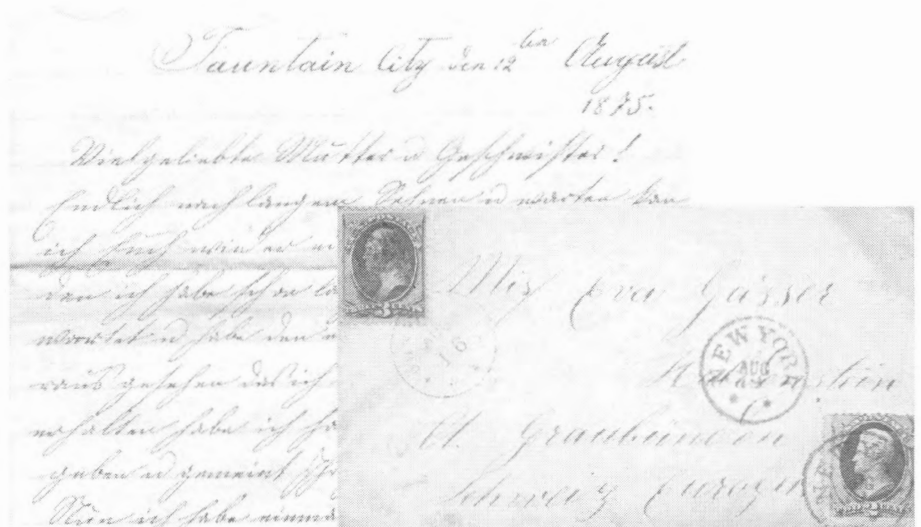 Fauntain City den 12ten August
1875.
Vielgeliebte Mutter u Geschwister!
Endlich nach langem Sehnen u warten kan
ich Euch wieder
den ich habe schon
wartet u habe den
raus gesehen das ich
erhalten habe ich
geben u gemeint
Nun ich habe einma
Miss Eva Gasser
Ct. Graubünden
Schweiz Europa
NEW YORK
AUG
16